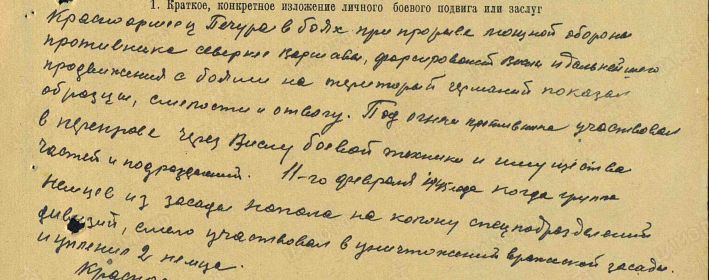 1. Краткое, конкретное изложение личного боевого подвига или заслуг
Красноармеец Печура в боях при прорыве мощной обороны
противника севернее Варшавы, форсирований Вислы и дальнейшего
продвижения с боями на територий германий показал
образцы, смелости и отвогу. Под огнем противника участвовал
в переправе через Вислу боевой техники и имущества
частей и подразделений. 11-го февраля 1945 года когда группа
немцев из засады напала на колону спецподразделений
дивизий, смело участвовал в уничтожений вражеской засады.
и упленил 2 немца.